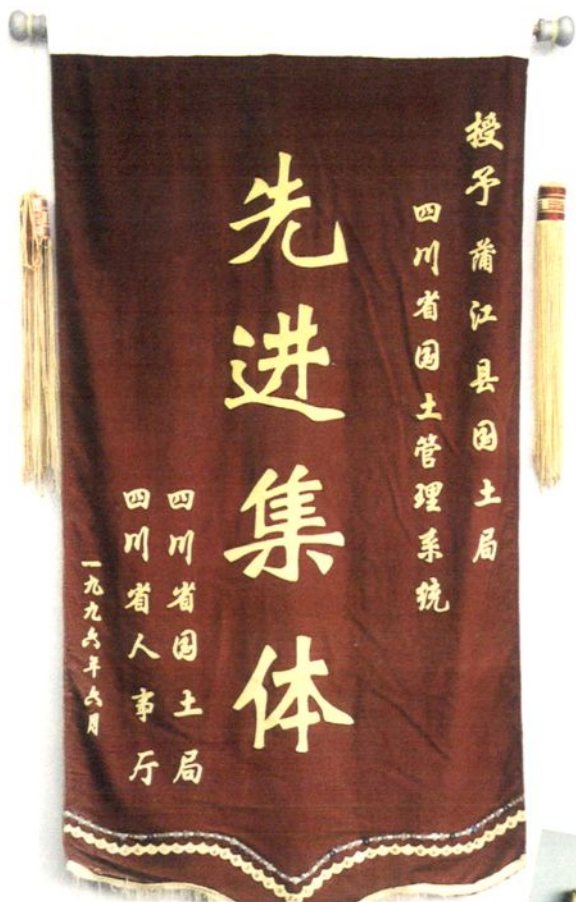 授予蒲江县国土局
四川省国土管理系统
先进集体
四川省国土局
四川省人事厅
一九九六年六月